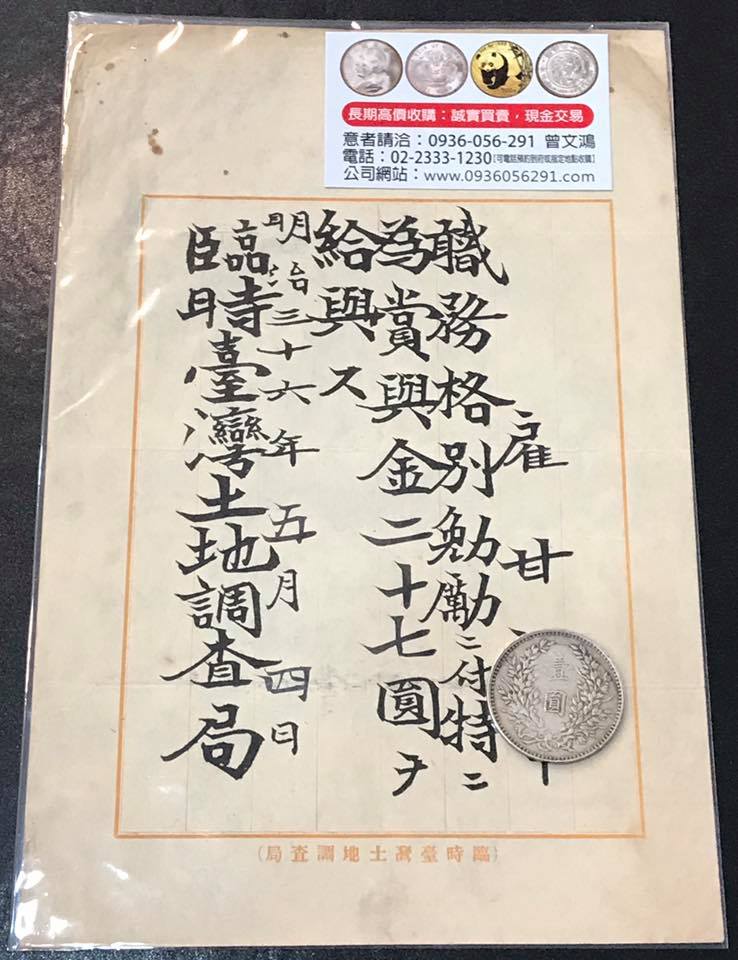 長期高價收購：誠實買賣，現金交易
意者請洽：0936-056-291 曾文鴻
電話：02-2333-1230[可電話預約到府或指定地點收購]
公司網站：www.0936056291.com
雇 甘
職務格別勉勵ニ付特ニ
為賞與金二十七圓ヲ
給與ス
明治三十六年五月四日
臨時臺灣土地調查局
壹圓
(臨時臺灣土地調査局)